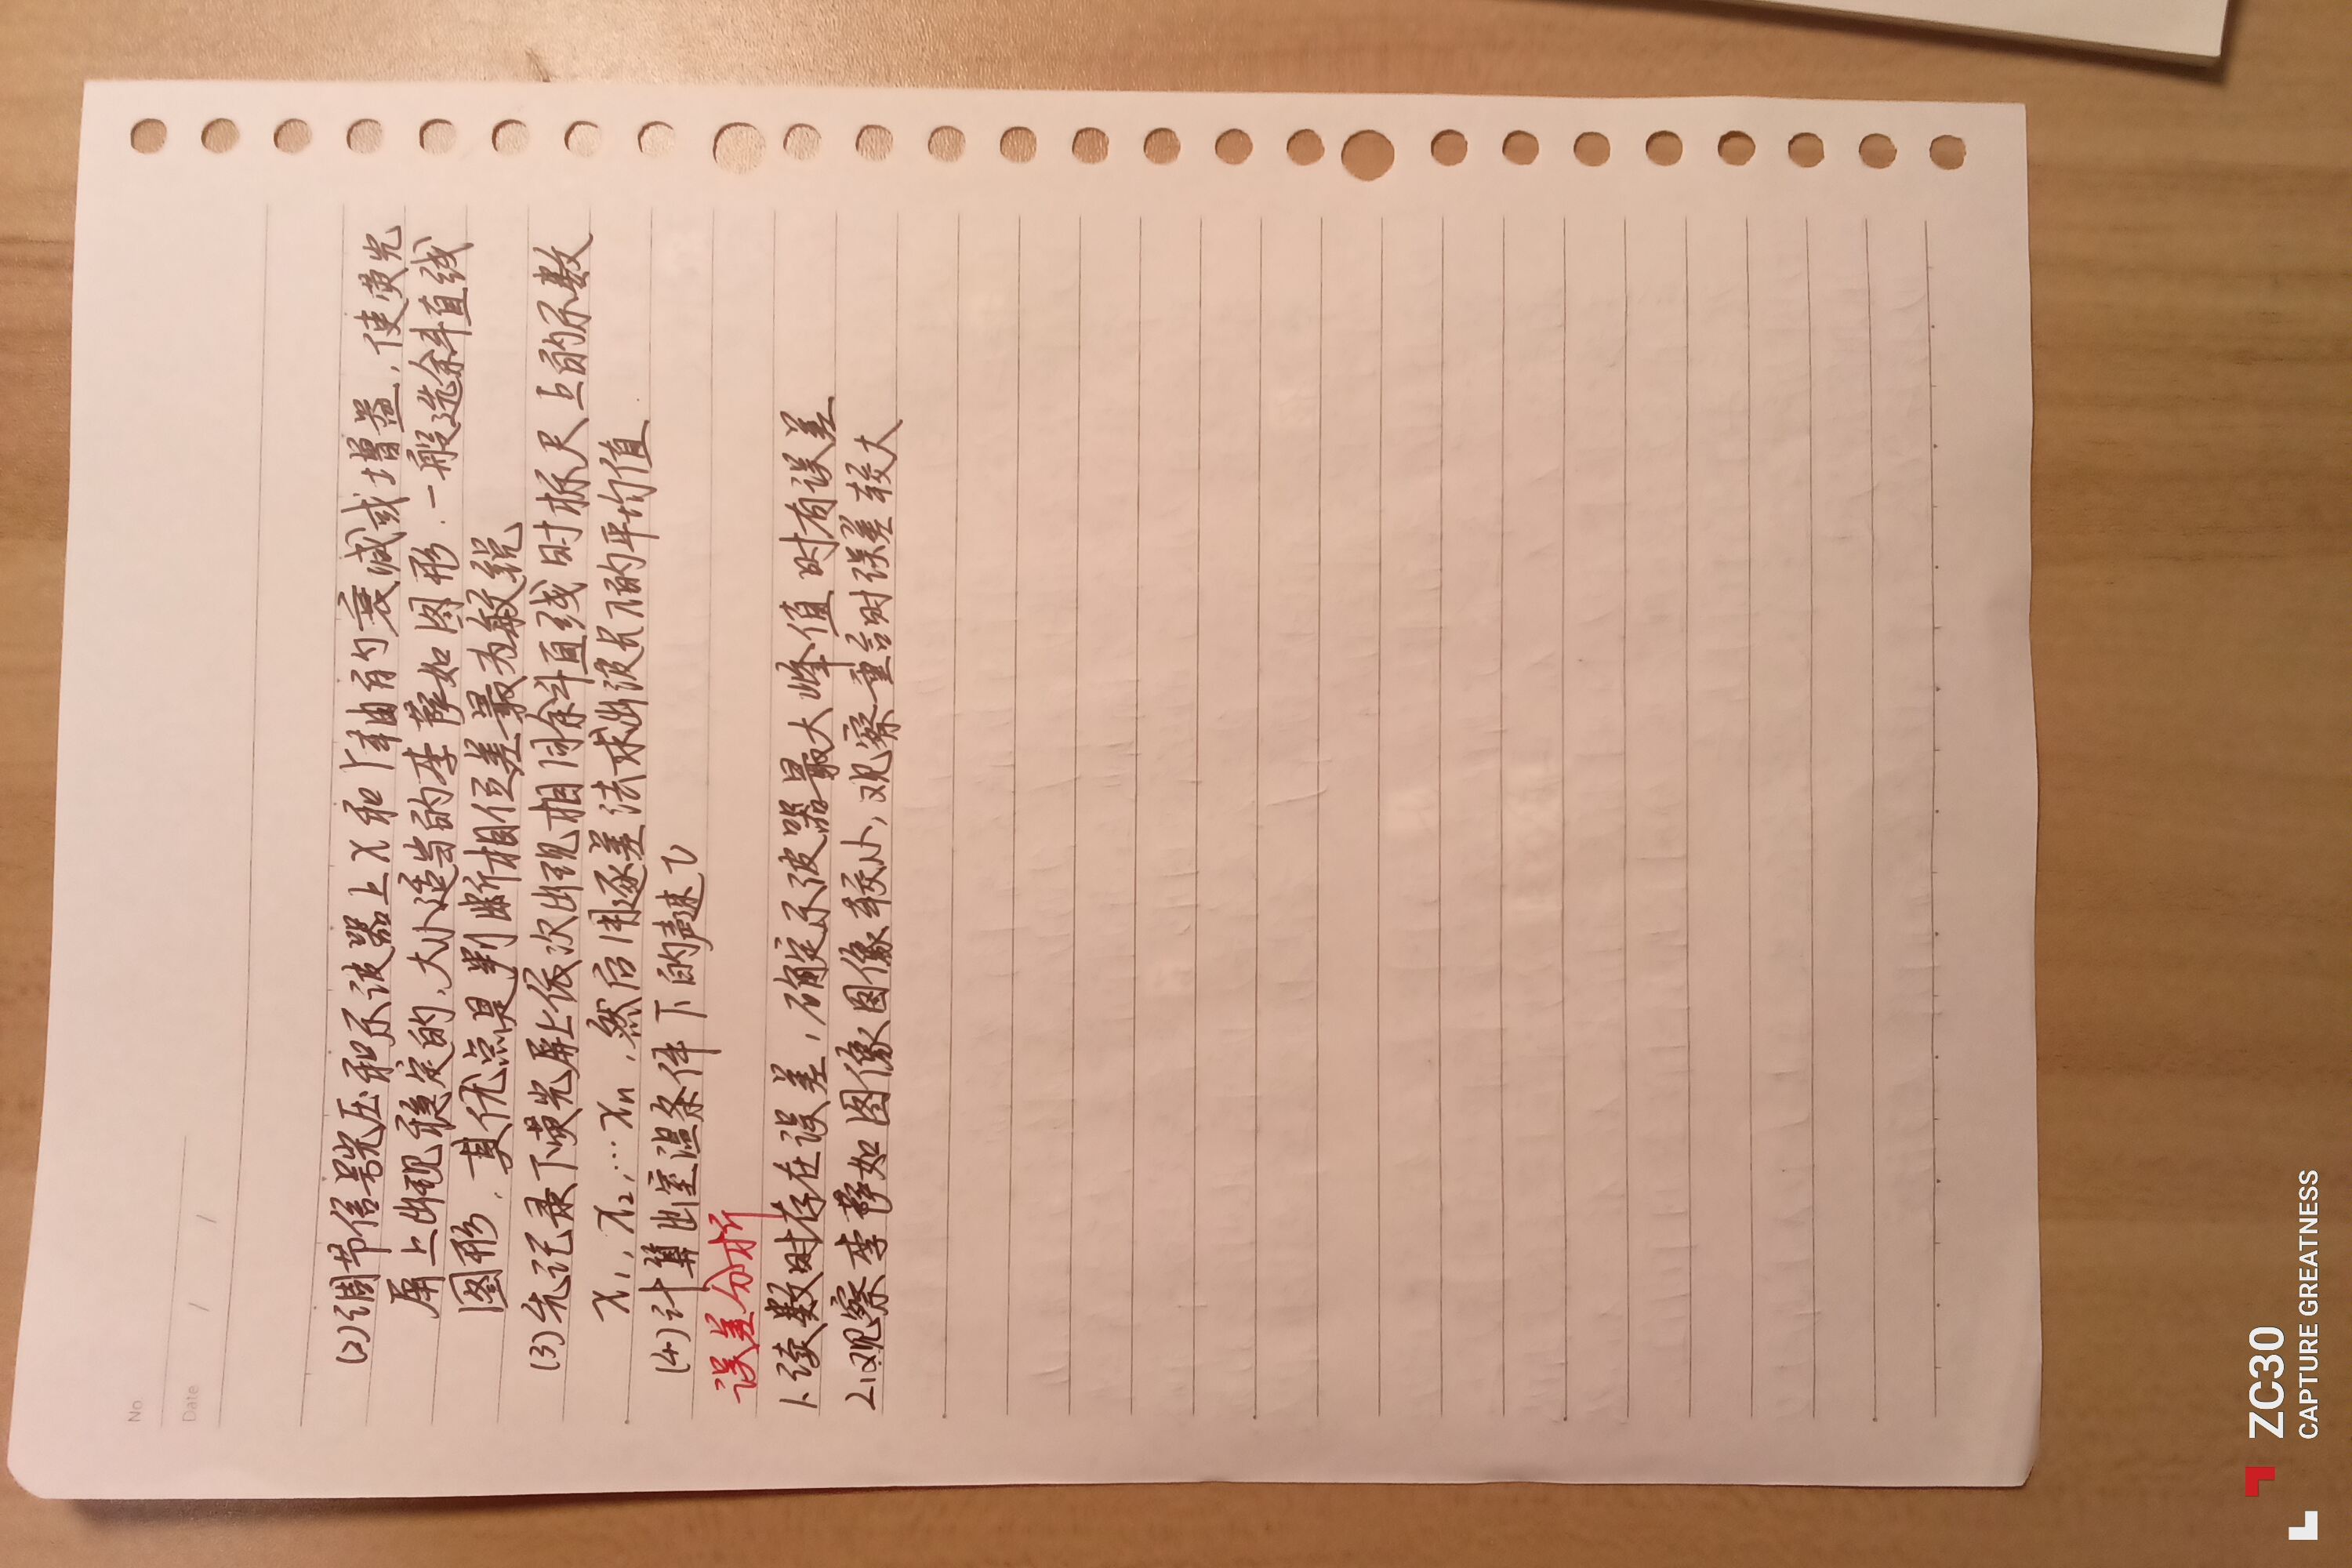 No.
Date / /
(2)调节信号光压和示波器上X和Y轴有的衰减或增益,使荧光
屏上出现稳定的,大小适当的李萨如图形.一般选余斜直线
图形,其优点是判断相位差最为敏锐
(3)先记录下荧光屏上依次出现相同余斜直线时标尺上的示数
x₁,x₂,…xn,然后用逐差法求出波长λ的平均值
(4)计算出室温条件下的声速v
误差分析
1.读数时存在误差,确定示波器最大峰值时有误差
2.观察李萨如图像图像较小,观察重合时误差较大
ZC30
CAPTURE GREATNESS